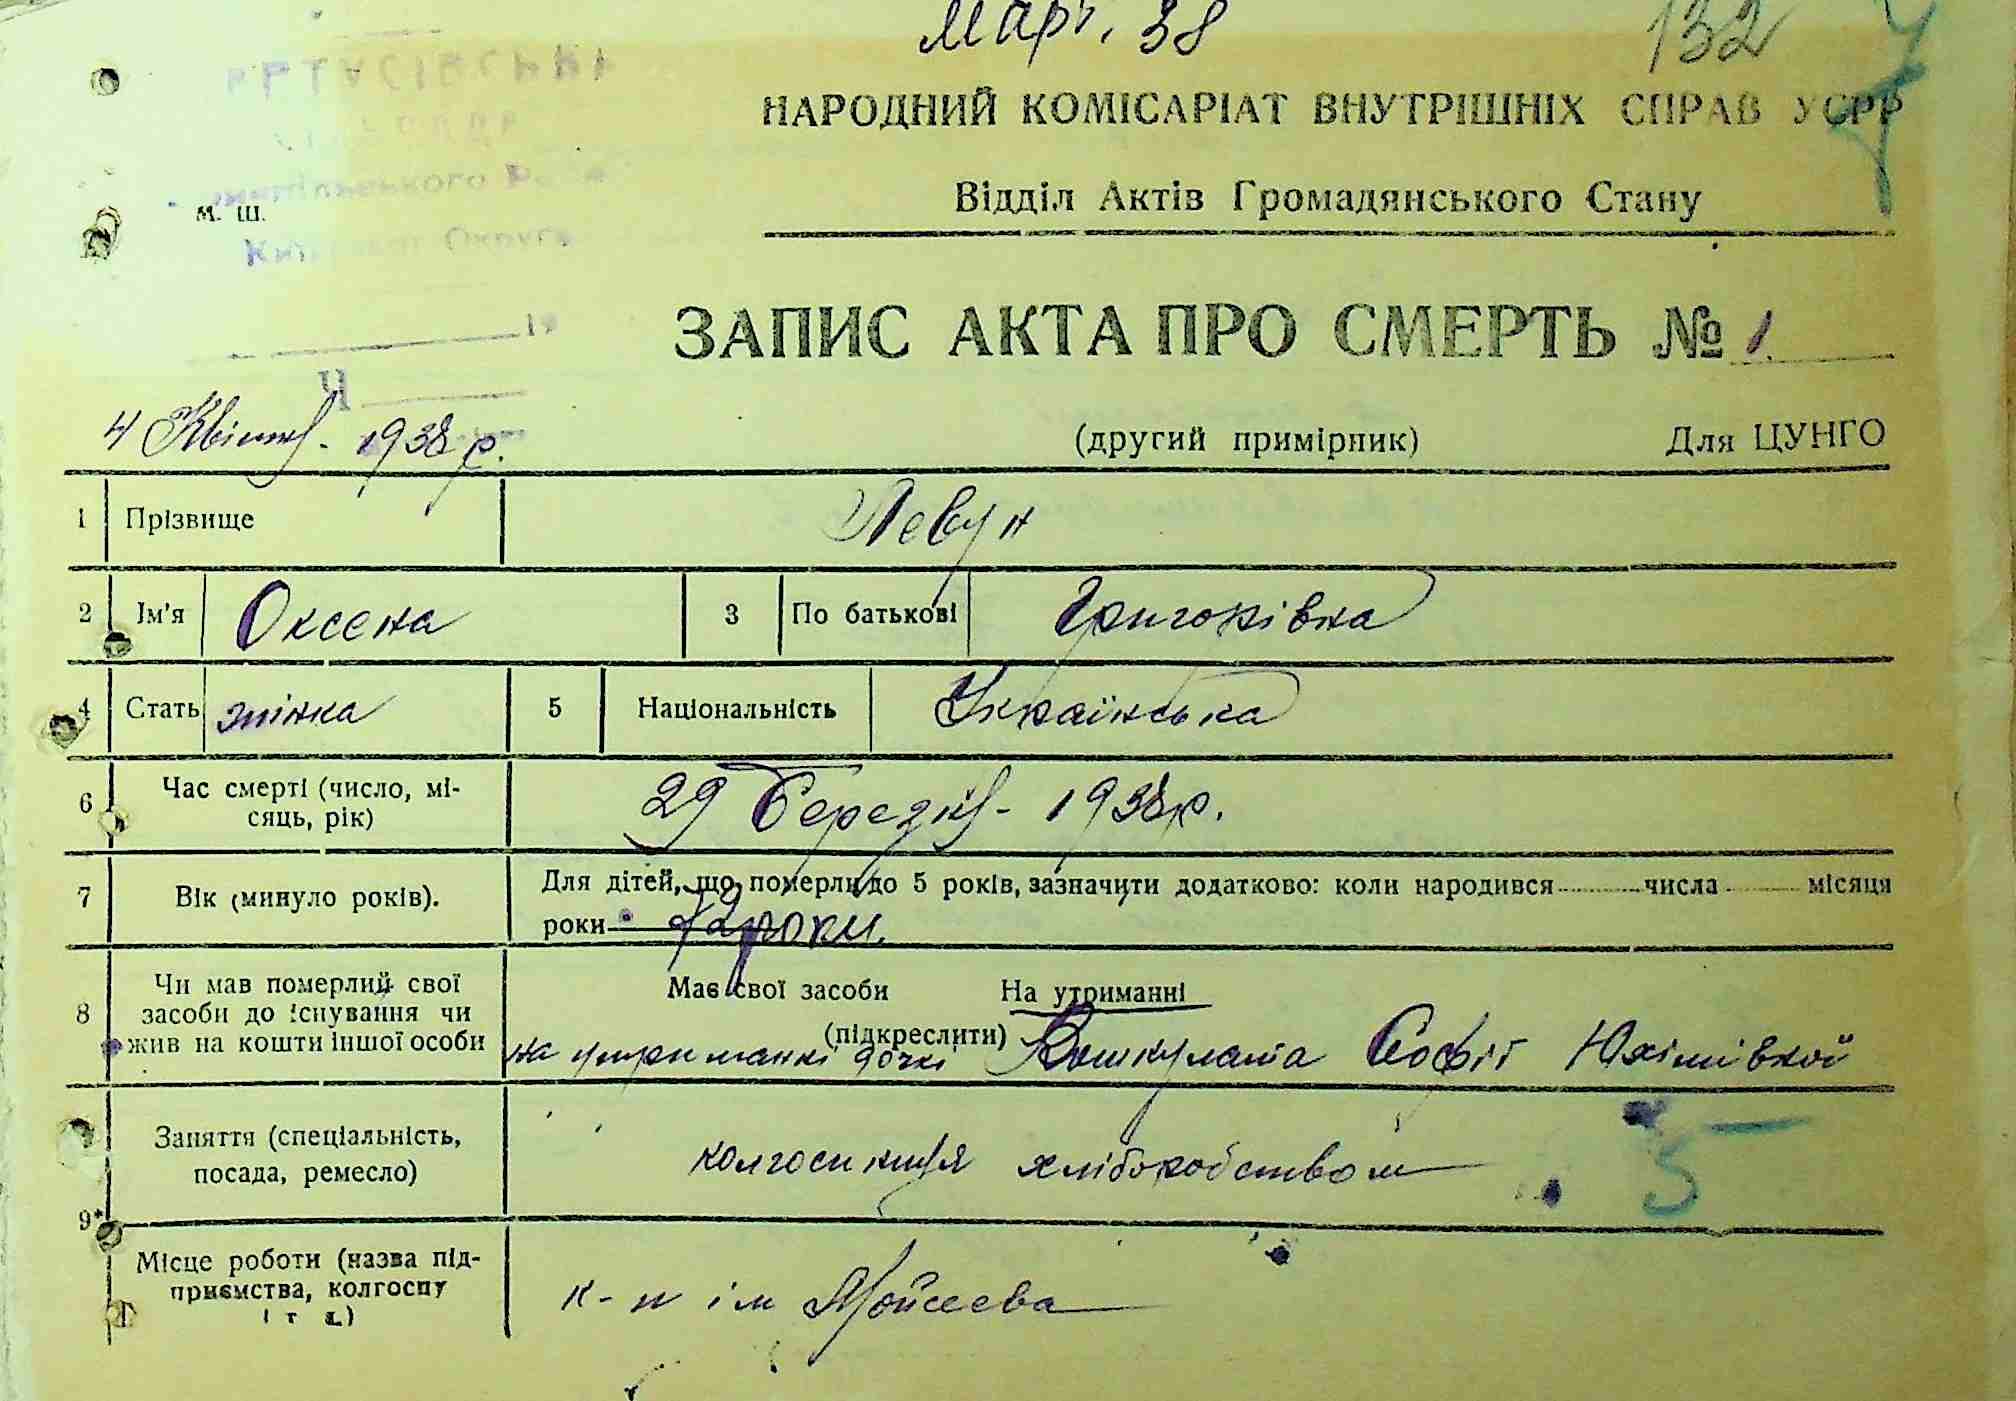 Март. 38
132
НАРОДНИЙ КОМІСАРІАТ ВНУТРІШНІХ СПРАВ УСРР
Відділ Актів Громадянського Стану
М. Ш.
19
ЗАПИС АКТА ПРО СМЕРТЬ № 1.
Ч
4 Квітня - 1938 р.
(другий примірник) Для ЦУНГО
1 Прізвище Левун
2 Ім'я Оксена 3 По батькові Григорівна
4 Стать жінка 5 Національність Українська
6 Час смерті (число, мі-
сяць, рік) 29 Березня - 1938р.
7 Вік (минуло років). Для дітей, що померли до 5 років, зазначити додатково: коли народився числа місяця
роки 72 роки.
8 Чи мав померлий свої
засоби до існування чи
жив на кошти іншої особи
Має свої засоби На утриманні
(підкреслити)
на утриманні дочкі Софії Юхімівкой
Заняття (спеціальність,
посада, ремесло) колгоспниця хліборобством
5
9*
Місце роботи (назва під-
приємства, колгоспу
і т д.) к-п ім Мойсеєва